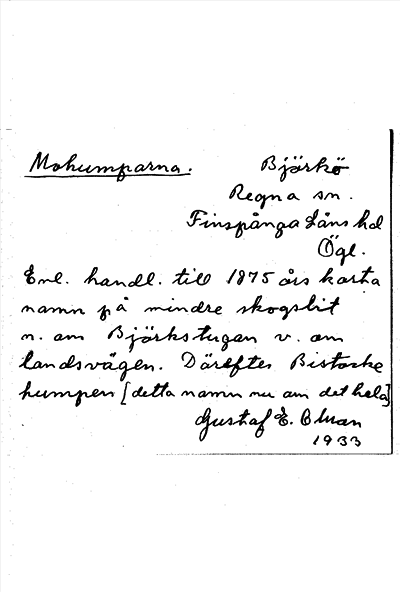 Mohumparna. Björkö
Regna sn.
Finspånga Läns hd
Ögl.
Enl. handl. till 1875 års karta
namn på mindre skogsbit
n. om Björkstugan v. om
landsvägen. Därefter Bistocke
humpen [detta namn nu om det hela]
Gustaf E.
1933